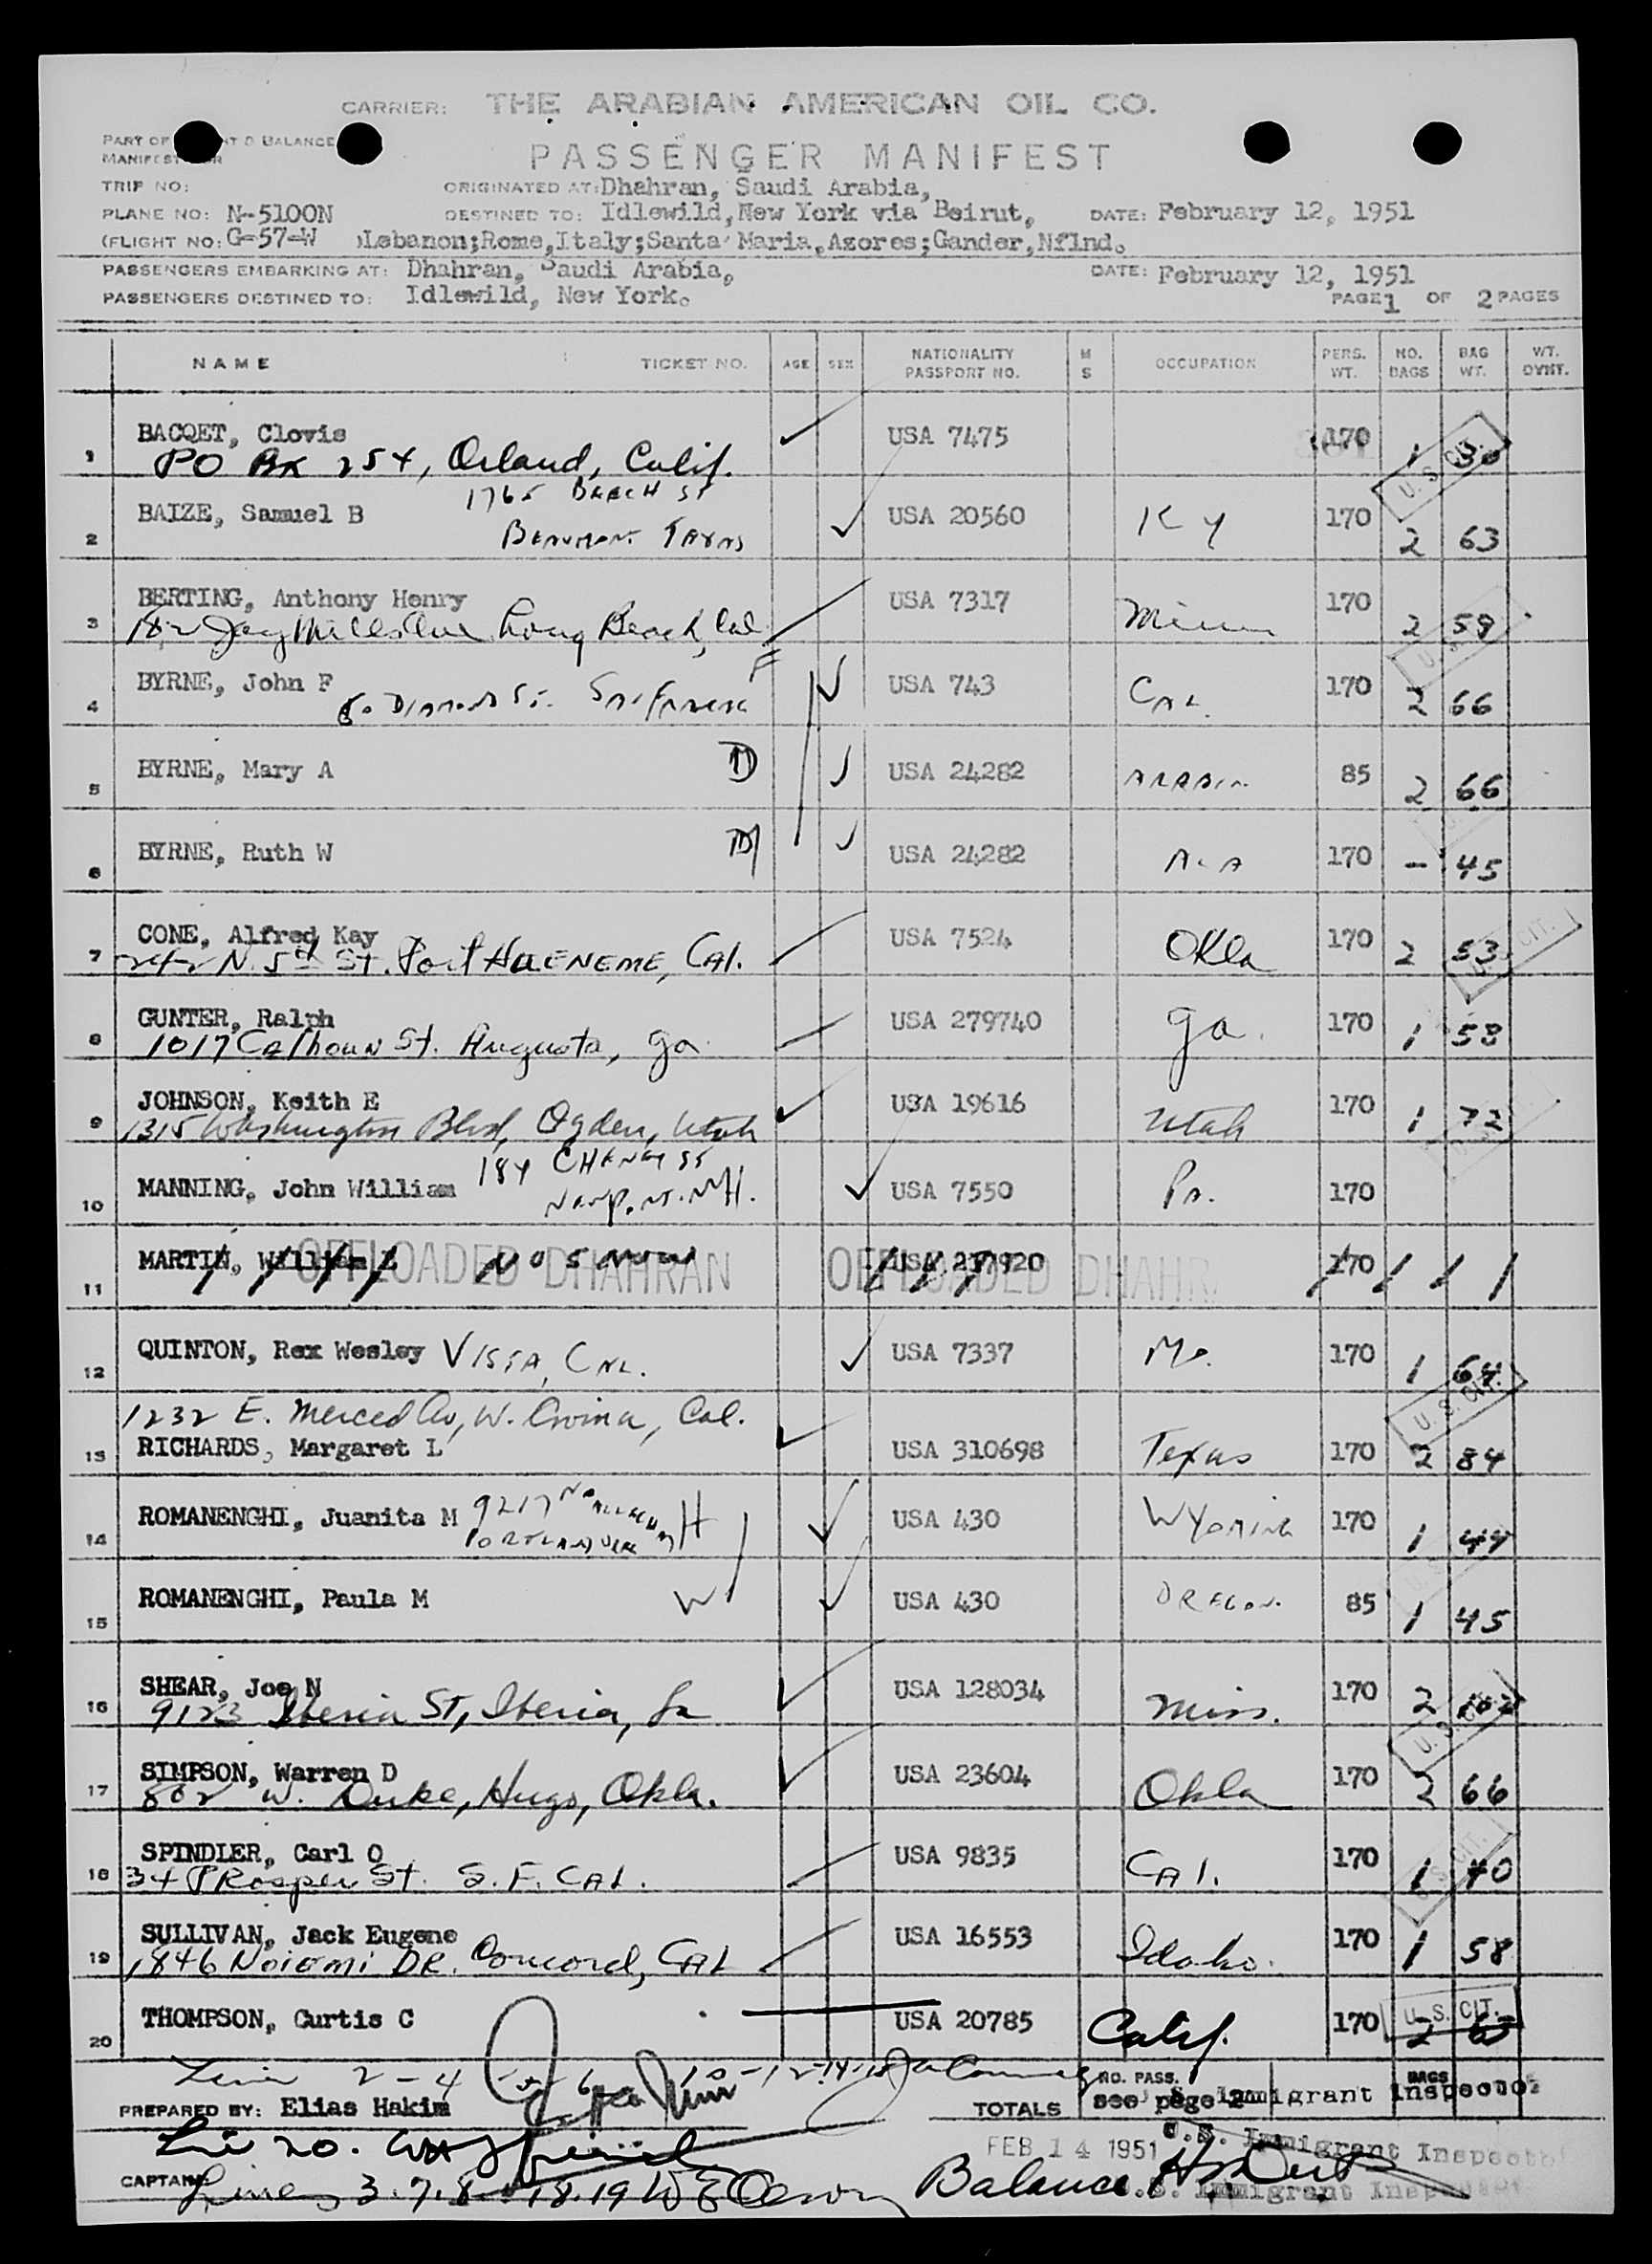 CARRIER: THE ARABIAN AMERICAN OIL CO.
PART OF BALANCE
MANIFEST
PASSENGER MANIFEST
TRIP NO: ORIGINATED AT: Dhahran, Saudi Arabia,
PLANE NO: N-5100N DESTINED TO: Idlewild, New York via Beirut, DATE: February 12, 1951
(FLIGHT NO: G-57-W Lebanon;Rome,Italy;Santa Maria,Azores;Gander,Nflnd.
PASSENGERS EMBARKING AT: Dhahran, Saudi Arabia, DATE: February 12, 1951
PASSENGERS DESTINED TO: Idlewild, New York. PAGE 1 OF 2 PAGES
NAME TICKET NO. AGE SEX NATIONALITY PASSPORT NO. M S OCCUPATION PERS. WT. NO. BAGS BAG WT. WT. OVHT.
1 BACQET, Clovis USA 7475 170 1 30
PO BX 254, Orland, Calif. U. S. CIT.
1765 BEECH ST
2 BAIZE, Samuel B USA 20560 Ky 170 2 63
BEAUMONT TEXAS
3 BERTING, Anthony Henry USA 7317 Minn 170 2 59
Long Beach, Cal
4 BYRNE, John F USA 743 CAL. 170 2 66
80 DIAMOND ST. SAN FRANCISCO F
5 BYRNE, Mary A D USA 24282 ARABIA 85 2 66
6 BYRNE, Ruth W M USA 24282 170 - 45
7 CONE, Alfred Kay USA 7524 Okla 170 2 53
242 N. 5th St. Port HUENEME, CAl. CIT.
8 GUNTER, Ralph USA 279740 Ga. 170 1 58
1017 Calhoun St. Augusta, Ga
9 JOHNSON, Keith E USA 19616 Utah 170 1 72
1315 Washington Blvd, Ogden, Utah
184 CHENEY ST
10 MANNING, John William USA 7550 Pa. 170
NEWPORT. N.H.
11 MARTIN, William L NO SHOW USA 237920 170
OFFLOADED DHAHRAN OFFLOADED DHAHRAN
12 QUINTON, Rex Wesley VISTA, CAL. USA 7337 Mo. 170 1 64
1232 E. Merced Av, W. Covina, Cal. U. S. CIT.
13 RICHARDS, Margaret L USA 310698 Texas 170 2 84
14 ROMANENGHI, Juanita M 9217 H USA 430 WYOMING 170 1 44
PORTLAND ORE
15 ROMANENGHI, Paula M W USA 430 OREGON. 85 1 45
16 SHEAR, Joe N USA 128034 Miss. 170 2
9123 Iberia St, Iberia, La U. S. CIT.
17 SIMPSON, Warren D USA 23604 Okla 170 2 66
802 W. Duke, Hugo, Okla.
18 SPINDLER, Carl O USA 9835 CAl. 170 1 40
34 PRosper St. S. F. CAL. U. S. CIT.
19 SULLIVAN, Jack Eugene USA 16553 Idaho. 170 1 58
1846 Noiemi DR. Concord, CAL
20 THOMPSON, Curtis C USA 20785 Calif. 170 2
U. S. CIT.
Line 2-4-5-6 10-12-14-15
NO. PASS. BAGS
PREPARED BY: Elias Hakim TOTALS see page 2 Immigrant Inspector
Line 20. FEB 14 1951 U.S. Immigrant Inspector
CAPTAIN: Lines 3.7.8 18.19 Balance U.S. Immigrant Inspector